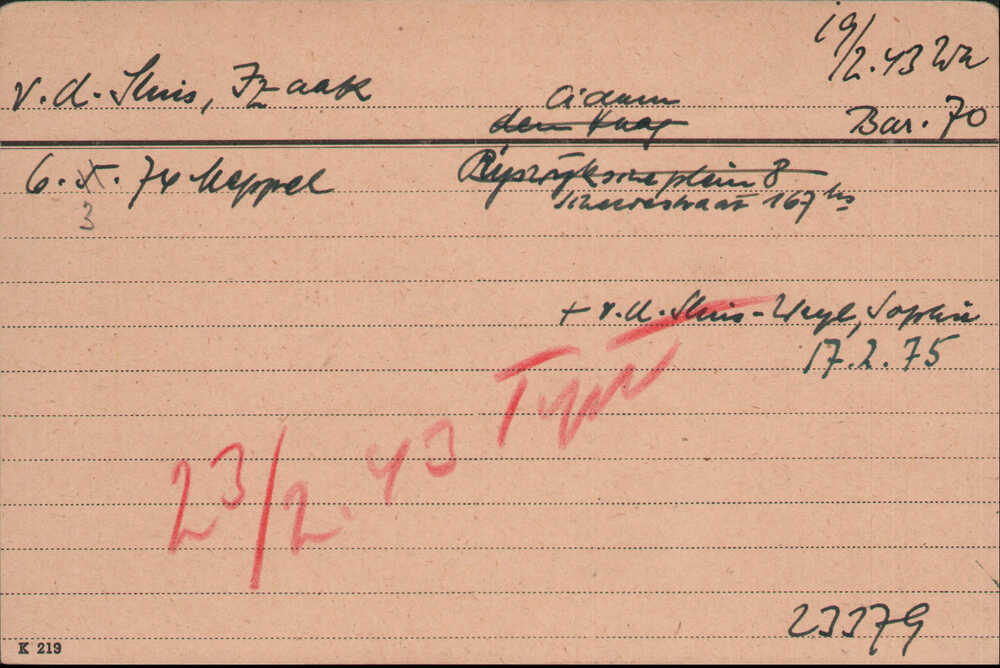 19/2.43 Wk
v.d. Sluis, Izaak
A'dam
den Haag
Bar. 70
6. 5. 74 Meppel
3
Rijswijkscheplein 8
straat 167 hs
+ v.d. Sluis-Weyl, Sophia
17.2.75
23/2.43
23379
K 219